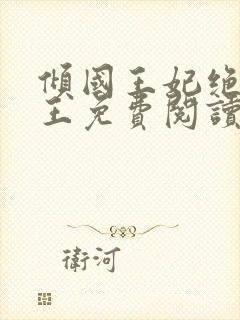 傾國王妃絕
王免費閱讀
衛河